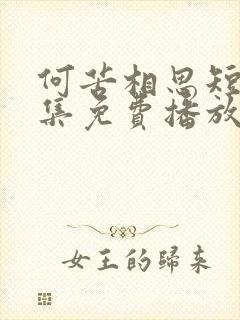 何苦相思短
集免費播放
女王的歸來